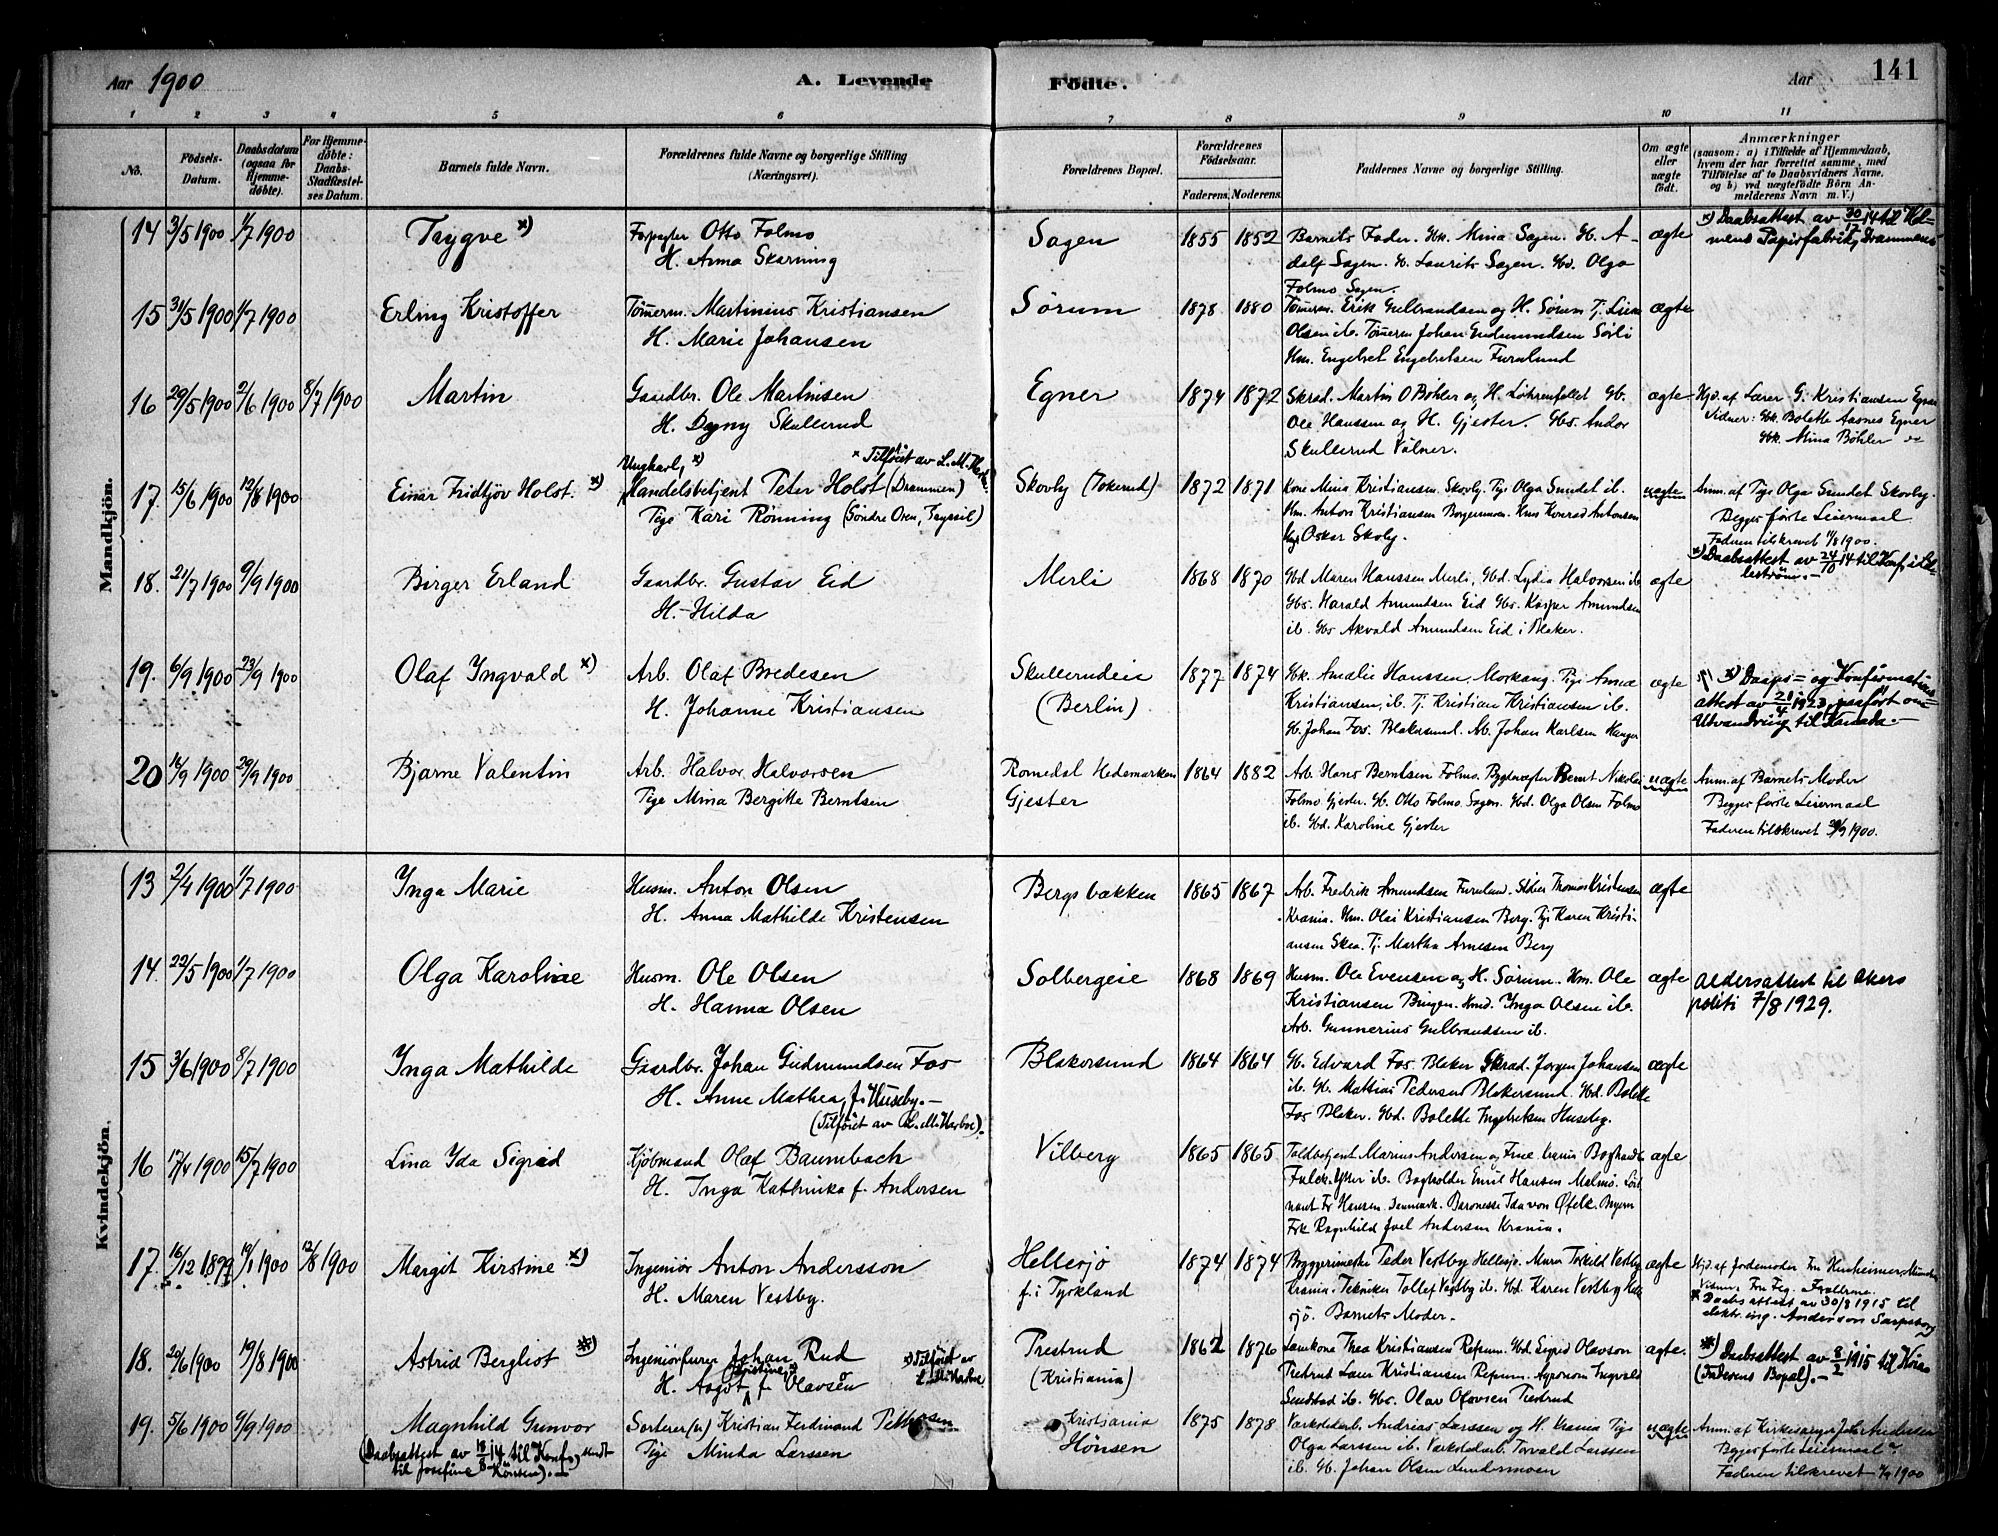 Aar 1900
A. Levende
Fødte.
Aar
141
1 2 3 4 5 6 7 8 9 10 11
No.
Fødsels-
Datum.
Daabsdatum
(ogsaa for
Hjemme-
døbte).
For Hjemme-
døbte:
Daabs-
Stadfæstel-
ses Datum.
Barnets fulde Navn.
Forældrenes fulde Navne og borgerlige Stilling
(Næringsvei).
Forældrenes Bopæl.
Forældrenes
Fødselsaar.
Faderens. Moderens.
Faddernes Navne og borgerlige Stilling.
Om ægte
eller
uægte
født.
Anmærkninger
(saasom: a) i Tilfælde af Hjemmedaab,
hvem der har forrettet samme, med
Tilføielse af to Daabsvidners Navne,
og b) ved uægtefødte Børn An-
melderens Navn m. V.)
Mandkjön.
14 3/5 1900 1/7 1900 Trygve x)
Forpagter Otto Folmo
H. Anna Skarning
Sagen 1855 1852
Barnets Fader. Gk. Mina Sagen. G. A-
dolf Sagen. G. Laurits Sagen. Gd. Olga
Folmo Sagen.
ægte
x) Daabsattest av 30/12 14 til Hol-
mens Papirfabrik, Drammen
15 31/5 1900 1/7 1900 Erling Kristoffer
Tømerm. Martinius Kristiansen
H. Marie Johansen
Sørum 1878 1880
Tømerm. Erik Gulbrandsen og H. Sørum Tj. Lina
Olsen ib. Tømerm Johan Gudmundsen Sørli
Hm. Engebret Engebretsen Furulund
ægte
16 29/5 1900 2/6 1900 8/7 1900 Martin
Gaardbr. Ole Martinsen
H. Dagny Skullerud
Egner 1874 1872
Skræd. Martin O Bøhler og H. Løhrenfallet Gb.
Ole Hanssen og H. Gjester. Gbs. Andor
Skullerud Valner.
ægte
Hjd. af Lærer G. Kristiansen Egner
Vidner: Gk. Bolette Aasnes Egner
Gk. Mina Bøhler
17. 15/6 1900 12/8 1900 Einar Fridtjov Holst. x)
Ungkarl, x) x Tilføiet av L. M. Harboe
Handelsbetjent Peter Holst (Drammen)
Pige Kari Rønning (Søndre Osen, Trysil)
Skovby (Tokerud) 1872 1871
Kone Mina Kristiansen Skovby. Pige Olga Sundet ib.
Hm. Anton Kristiansen Borgermoen. Hms Konrad Antonsen
Oskar Skoby.
uægte
Anm. af Pige Olga Sundet Skovby.
Begges første Leiermaal
Faderen tilskrevet 11/8 1900.
x) Daabsattest av 24/10 14 til Konf. i Lil-
lestrøm.-
18. 21/7 1900 9/9 1900 Birger Erland
Gaardbr. Gustav Eid
H. Hilda
Merli 1868 1870
Gd Maren Hanssen Merli, Gd. Lydia Halvorsen ib
Gbs. Harald Amundsen Eid Gbs. Kasper Amundsen
ib. Gbs Akvald Amundsen Eid i Blaker.
ægte
19. 6/9 1900 23/9 1900 Olaf Ingvald x)
Arb. Olaf Bredesen
H. Johanne Kristiansen
Skullerudeie
(Berlin) 1877 1874
Gk. Amalie Hanssen, Morkang. Pige Anna
Kristiansen, ib. Tj. Kristian Kristiansen ib.
G. Johan Fos. Blakersund. Ab. Johan Karlsen Hanger
ægte
x) Daaps= og Konfirmations
attest av 21/4 1923, paaført om
Utvandring til Kanada.-
20 16/9 1900 29/9 1900 Bjarne Valentin
Arb. Halvor Halvorsen
Pige Mina Bergitte Berntsen
Romedal Hedemarken
Gjester 1864 1882
Arb. Hans Berntsen Folmo. Bernt Nikolai
Folmo Gjester. G. Otto Folmo. Sagen. Gd. Olga Olsen Folmo
ib. Gd. Karoline Gjester
uægte
Anm. af Barnets Moder
Begges første Leiermaal
Faderen tilskrevet 29/9 1900.
Kvindekjön.
13 2/4 1900 1/7 1900 Inga Marie
Husm. Anton Olsen
H. Anna Mathilde Kristensen
Bergsbakken 1865 1867
Arb. Fredrik Amundsen Furulund. Thomas Kristensen
Krania. Hm. Olai Kristiansen Berg. Pj Karen Kristi-
ansen Skea. Tj. Martha Arnesen Berg
ægte
14. 22/5 1900 1/7 1900 Olga Karoline
Husm. Ole Olsen
H. Hanna Olsen
Solbergeie 1868 1869
Husm. Ole Evensen og H. Sørum. Hm. Ole
Kristiansen Bingen. Hmd. Inga Olsen ib.
Arb. Gunnerius Gulbrandsen ib.
ægte
Aldersattest til Akers
politi 7/8 1929.
15 3/6 1900 8/7 1900 Inga Mathilde
Gaardbr. Johan Gudmundsen Fos
H. Anne Mathea, f. Huseby.-
(Tilføiet av L. M. Harboe).
Blakersund 1864 1864
G. Edvard Fos. Blaker Skræd. Jørgen Johansen
ib. G. Mattias Pedersen Blakersund. Gd. Bolette
Fos Blaker. Gd. Bolette Ingebretsen Huseby.
ægte
16 17/4 1900 15/7 1900 Lina Ida Sigrid
Kjøbmand Olaf Baumbach
H. Inga Kathinka f. Andersen
Vilberg 1865 1865
Toldbetjent Marius Andersen og Frue Krania
ib. Bogholder Emil Hansen Malmø. Løit
nant Fr Hansen. Danmark. Baronesse Ida von Øfelk. Bayern
Frk Ragnhild Joel Andersen Krania.
ægte
17. 16/12 1899 19/1 1900 12/8 1900 Margit Kirstine x)
Ingeniør Anton Andersson
H. Maren Vestby.
Hellesjø
f. i Tyskland 1874 1874
Byggmester Peder Vestby Hellesjø. Murer Torkild Vestby
Krania. Tekniker Tollef Vestby ib. Gd. Karen Vestby Helle
sjø. Barnets Moder.
ægte
Hjd. af Jordemoder Fru Kunheimer, München
Vidner: Fru Feg.
x Daabsattest av 30/8 1915 til
elektr. ing. Anderson Sarpsborg
18. 20/6 1900 19/8 1900 Astrid Bergliot x)
Ingeniør Johan Rud
(Kristine x)
H. Aagot f. Olavsen
x) Tilføiet av
L. M. Harboe
Prestrud
(Kristiania) 1862 1876
Thea Kristiansen Repum. Gd. Sigrid Olavson
Prestrud Lars Kristiansen Repum. Agronom Ingvald
Sundstad ib. Gbs. Olav Olavsen Prestrud
ægte.
x) Daabsattest av 8/2 1915 til Kria
(Faderens Bopæl).-
19. 5/6 1900 9/9 1900 Magnhild Gunvor
(Daabsattest av 18/8 14 til Konf., sendt
til Josefine Hönsen).-
Sorterer Kristian Ferdinand Pettersen
Pige Minda Larssen
Kristiania
Hönsen 1875 1878
Værkstedarb. Andreas Larssen og H. Krania Pige
Olga Larssen ib. Værkstedarb. Torvald Larssen
ib. G. Johan Olsen Lundermoen
uægte
Anm. af Kirkesanger Joh. Andersen
Begges første Leiermaal
Faderen tilskrevet 1900